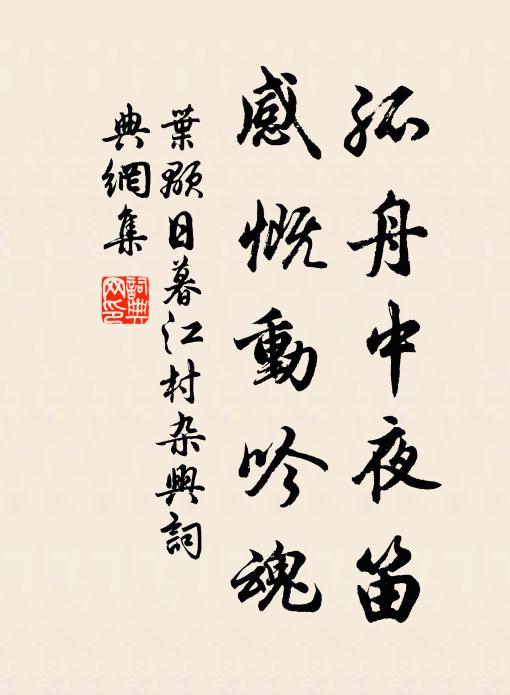 孤舟中夜笛
感慨動吟魂
葉顒日暮江村杂興詞
典網集
詞典
网印